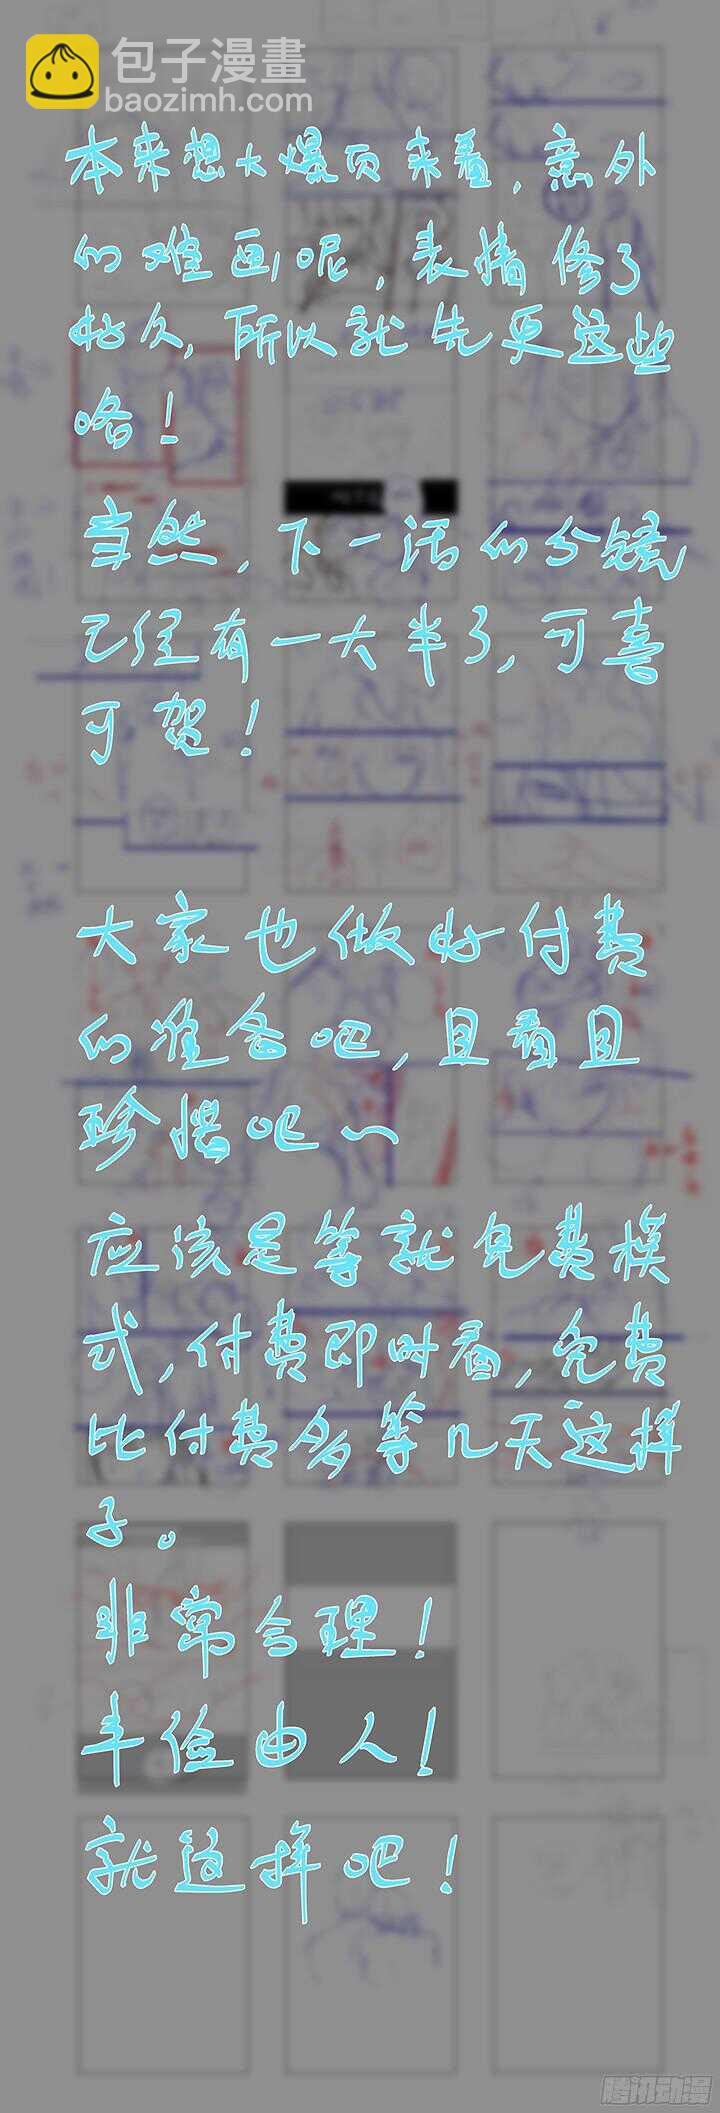 包子漫畫
baozimh.com
本来想大爆页来着，意外
的难画呢，表情修了
好久，所以就先更这些
咯！
当然，下一话的分镜
已经有一大半了，可喜
可贺！
大家也做好付费
的准备吧，且看且
珍惜吧～
应该是等就免费模
式，付费即时看，免费
比付费多等几天这样
子。
非常合理！
丰俭由人！
就这样吧！
腾讯动漫